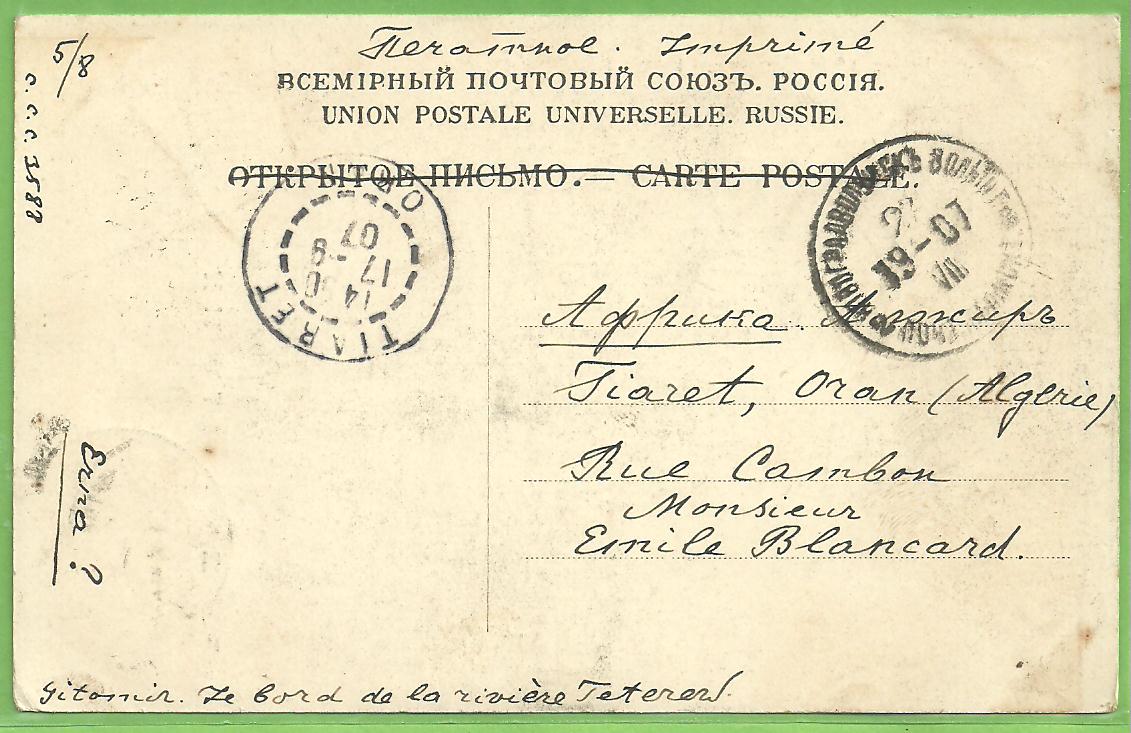 Печатное. Imprimé
ВСЕМІРНЫЙ ПОЧТОВЫЙ СОЮЗЪ. РОССІЯ.
UNION POSTALE UNIVERSELLE. RUSSIE.
ОТКРЫТОЕ ПИСЬМО.— CARTE POSTALE.
5/8
c.c.c. 3588
TIARET
ORAN
14 30
17 -9
07
19-07
VII
Африка. Алжиръ
Tiaret, Oran (Algérie)
Rue Cambon
Monsieur
Emile Blancard.
Gitomir. Le bord de la rivière Teterew.